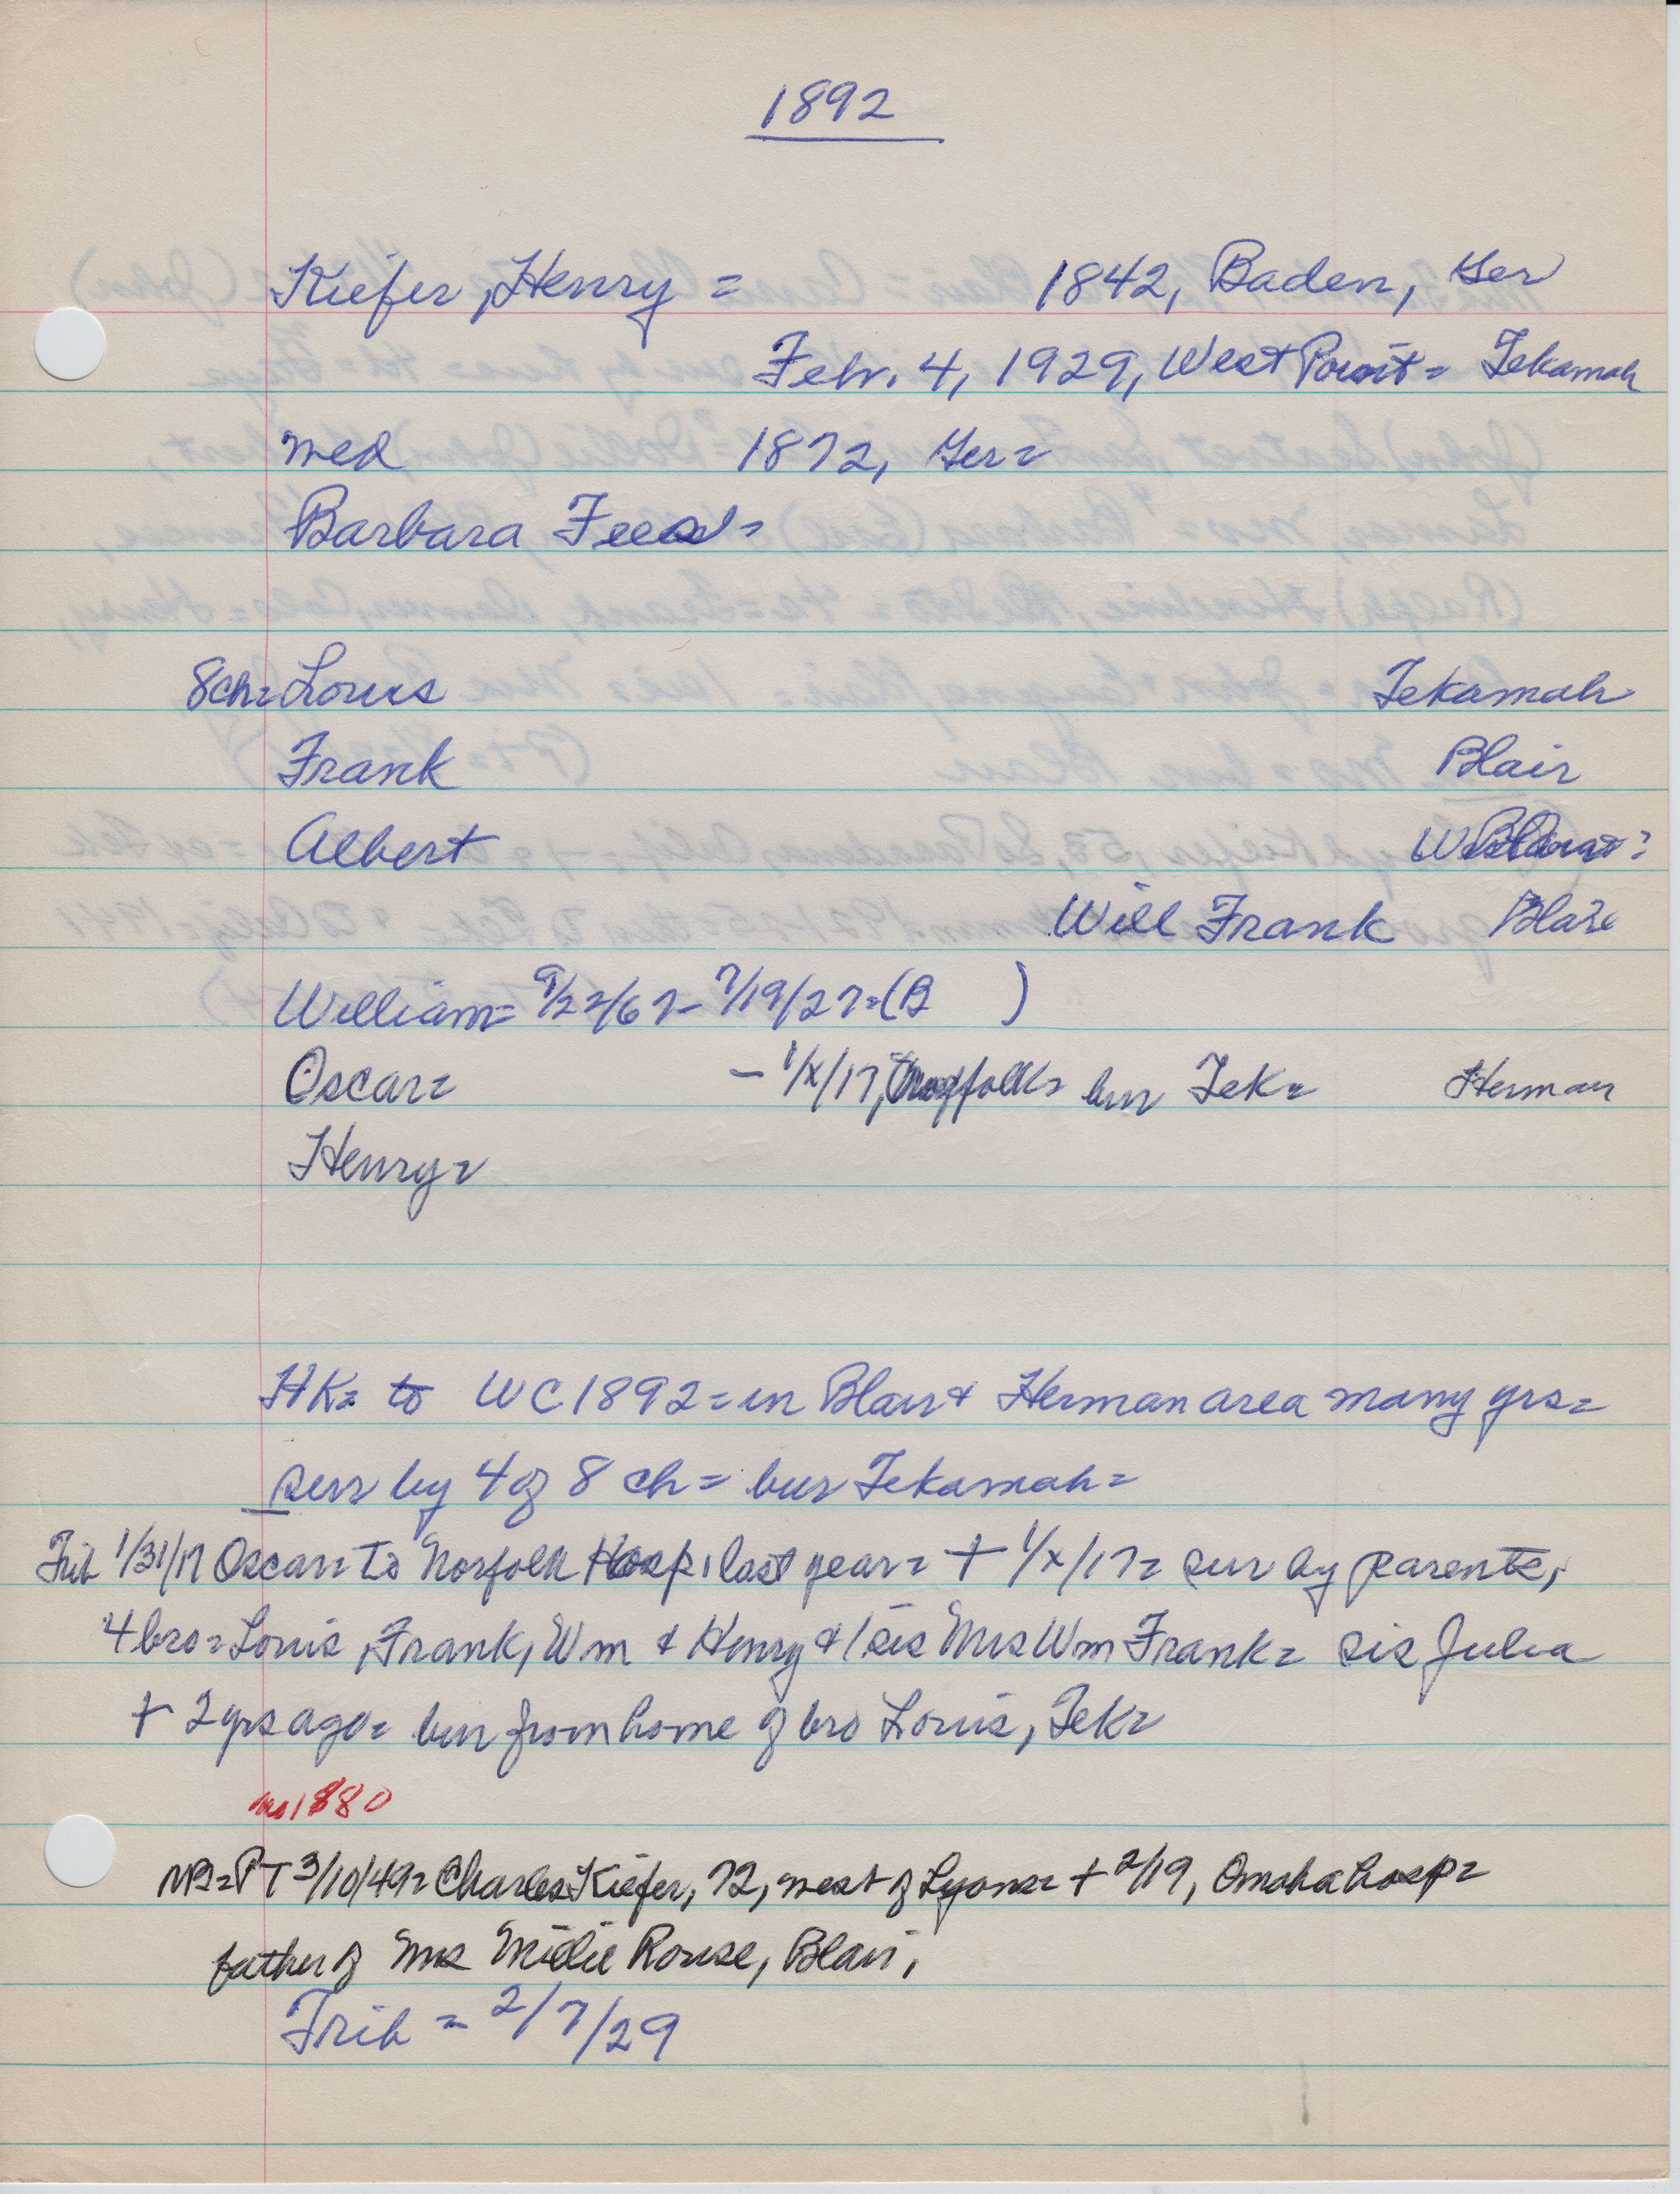 1892
Kiefer, Henry = 1842, Baden, Ger
Febr. 4, 1929, West Point = Tekamah
med 1872, Ger =
Barbara
8ch = Louis Tekamah
Frank Blair
Albert
Will Frank Blair
William = 9/22/67 - 7/19/27 = (B )
Oscar = - 1/x/17, Norfolk = bur Tek = Herman
Henry =
HK = to WC 1892 = in Blair & Herman area many yrs =
surv by 4 of 8 ch = bur Tekamah =
Trib 1/31/17 Oscar = To Norfolk Hosp, last year = + 1/x/17 = sur by parents,
4 bro = Louis, Frank, Wm & Henry & 1 sis Mrs Wm Frank = sis Julia
+ 2 yrs ago = bur from home of bro Louis, Tek =
no 1880
= PT 3/10/49 = Charles Kiefer, 72, west of Lyons = + 2/19, Omaha hosp =
father of Mrs Millie Rouse, Blair,
Trib = 2/7/29